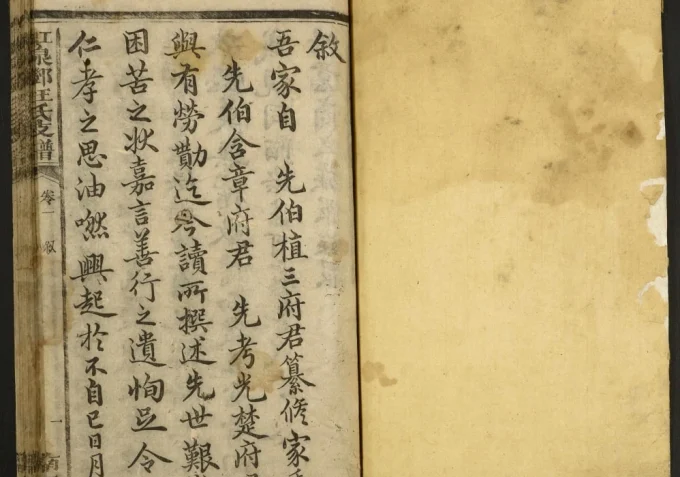 敘
吾家自 先伯植三府君纂修家
先伯含章府君 先考光楚府
與有勞勩迄今讀所撰述先世艱
困苦之狀嘉言善行之遺恂足令
仁孝之思油然興起於不自已日月
泉鄉汪氏支譜
卷一 敘
一